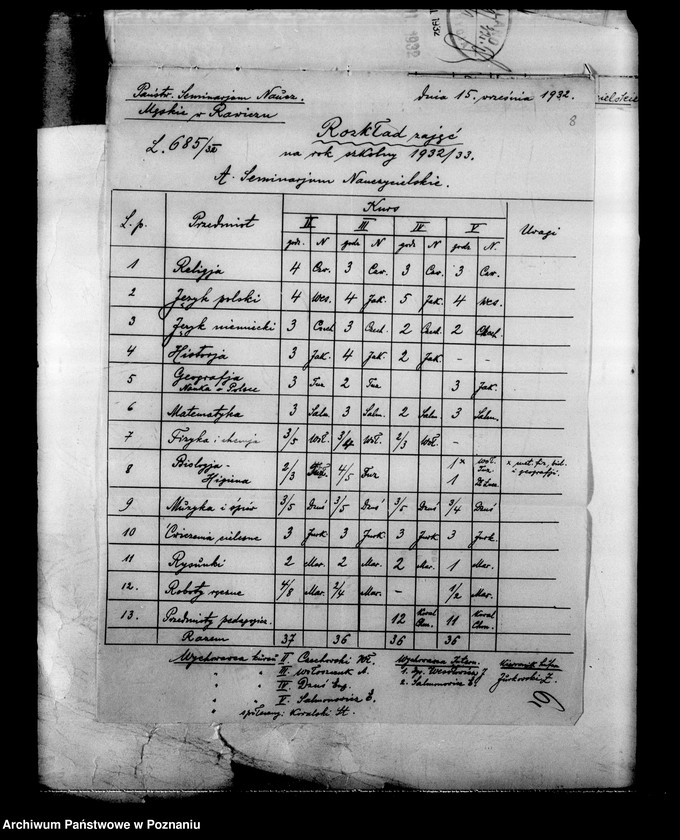 1932
Państw. Seminarjum Naucz.
Męskie w Rawiczu
dnia 15. września 1932.
8
L. 685/32
Rozkład zajęć
na rok szkolny 1932/33.
A. Seminarjum Nauczycielskie.
L. p. Przedmiot Kurs Uwagi
II III IV V
godz. N godz. N godz. N godz. N.
1 Religja 4 Caw. 3 Caw. 3 Caw. 3 Caw.
2 Język polski 4 Wes. 4 Jak. 5 Jak. 4 Wes.
3 Język niemiecki 3 Czech. 3 Czech. 2 Czech. 2 Czech.
4 Historja 3 Jak. 4 Jak. 2 Jak. - -
5 Geografja 3 Tuz 2 Tuz 3 Jak.
Nauka o Polsce
6 Matematyka 3 Salm. 3 Salm. 2 Salm. 3 Salm.
7 Fizyka i chemja 3/5 Woł. 3/4 Woł. 2/3 Woł. -
8 Biologja - 2/3 4/5 Tuz 1 x Woł. Tuz x met. fiz., biol.
Higiena 1 i geografji.
9 Muzyka i śpiew 3/5 Dznś 3/5 Dznś 3/5 Dznś 3/4 Dznś
10 Ćwiczenia cielesne 3 Jurk. 3 Jurk. 3 Jurk. 3 Jurk.
11 Rysunki 2 Mar. 2 Mar. 2 Mar. 1 Mar.
12. Roboty ręczne 4/8 Mar. 2/4 Mar. - 1/2 Mar.
13. Przedmioty pedagogicz. 12 Kowal. 11 Kowal.
Razem 37 36 36 36
Wychowawca kursu II Czechowski Wł.
" III A.
" IV
" V Salmonowicz E.
społeczny: Kowalski St.
Wychowawca Intern.
1.
2. Salmonowicz E.
Kierownik Intern.
Jurkowski Z.
Archiwum Państwowe w Poznaniu